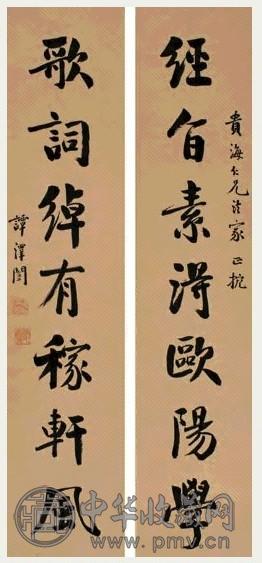 貴海仁兄法家正
經旨素得歐陽學
歌詞綽有稼軒風
譚澤闓
中华收藏网
www.pmyv.cn